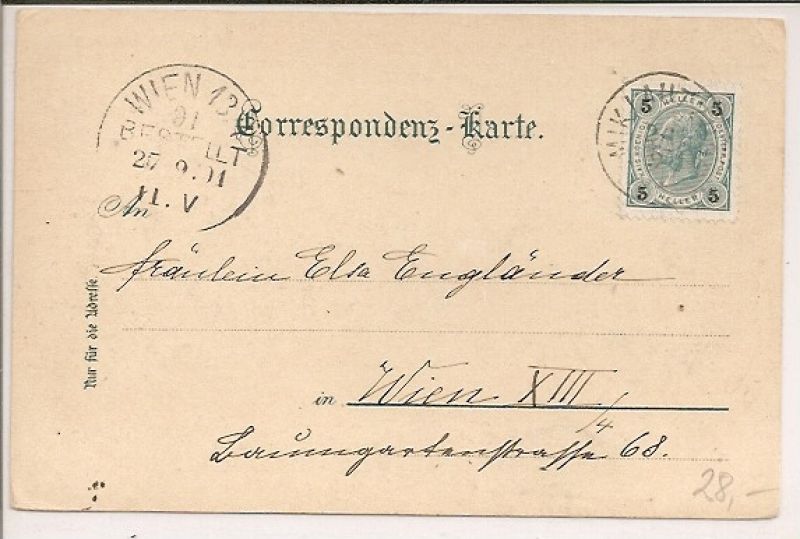 WIEN 13
91
BESTELLT
27.9.01
11.V
Correspondenz-Karte.
5 HELLER 5
5 HELLER 5
An
Fräulein Elsa Engländer
in Wien XIII/4
Baumgartenstrasse 68.
Nur für die Adresse.
28,-